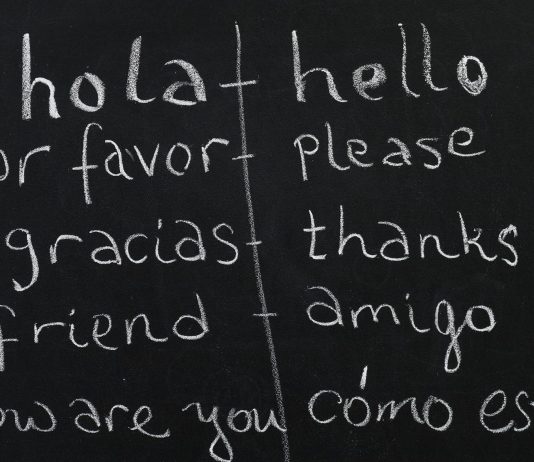 hola - hello
or favor - please
gracias - thanks
friend - amigo
ow are you cómo es